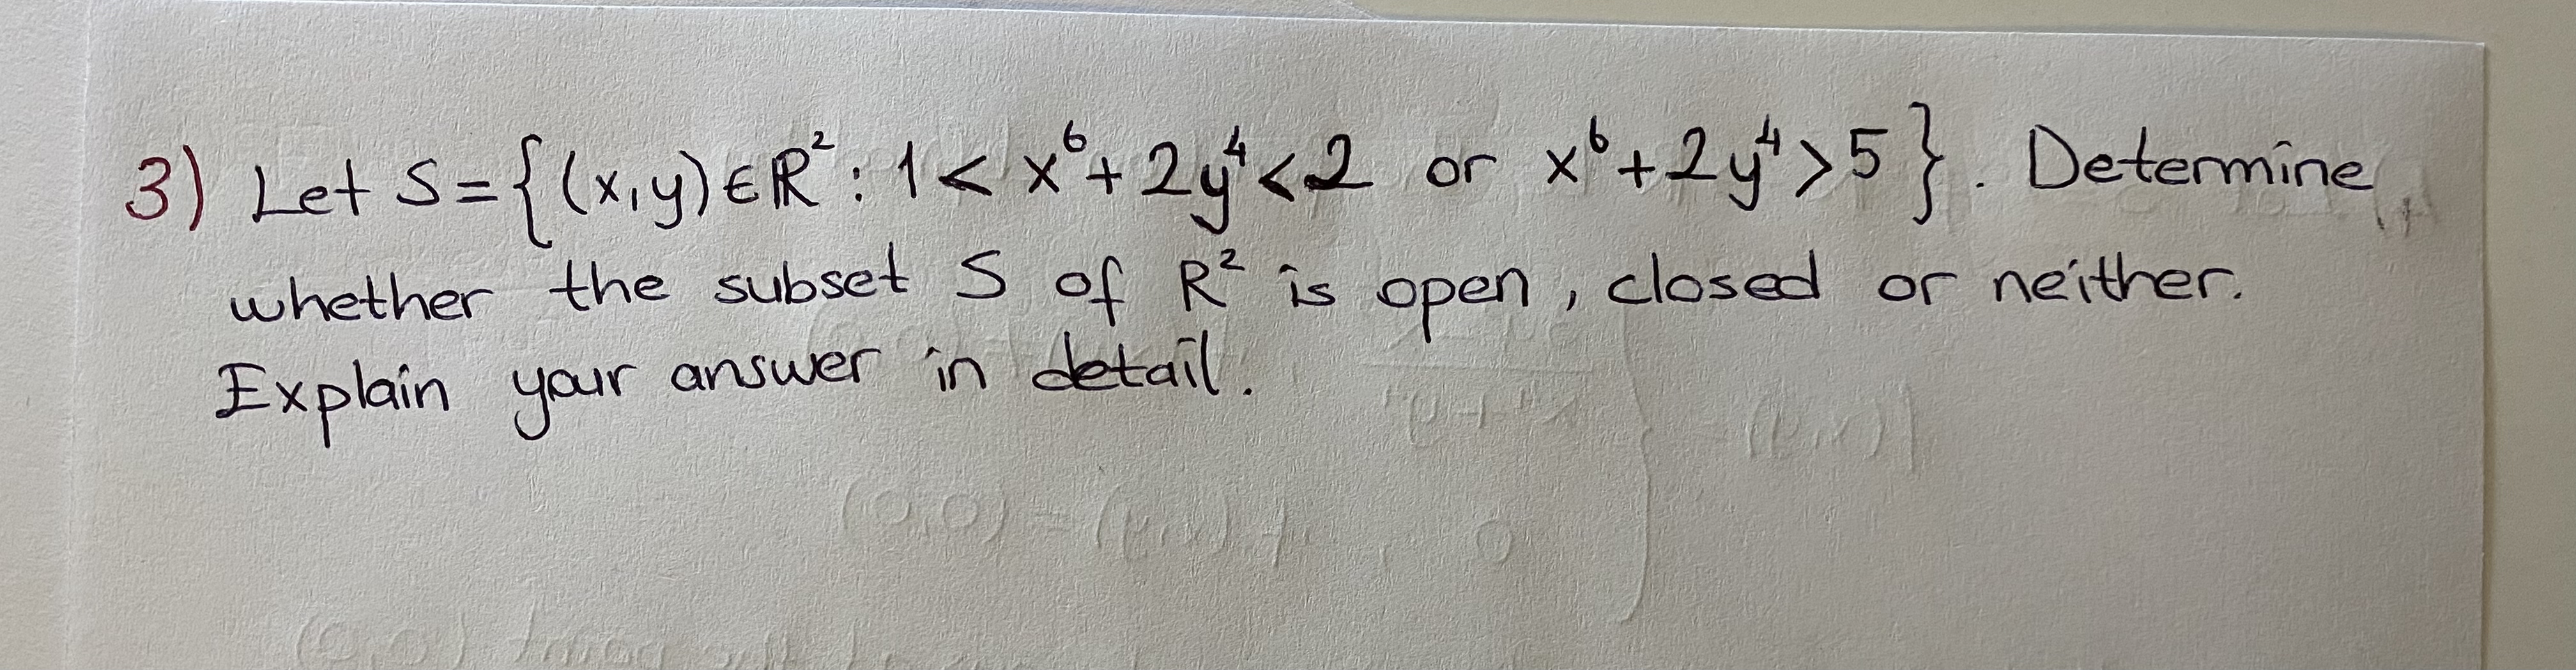 3) Let S = {(x,y) ∈ ℝ² : 1 < x⁶ + 2y⁴ < 2 or x⁶ + 2y⁴ > 5}. Determine
whether the subset S of ℝ² is open, closed or neither.
Explain your answer in detail.